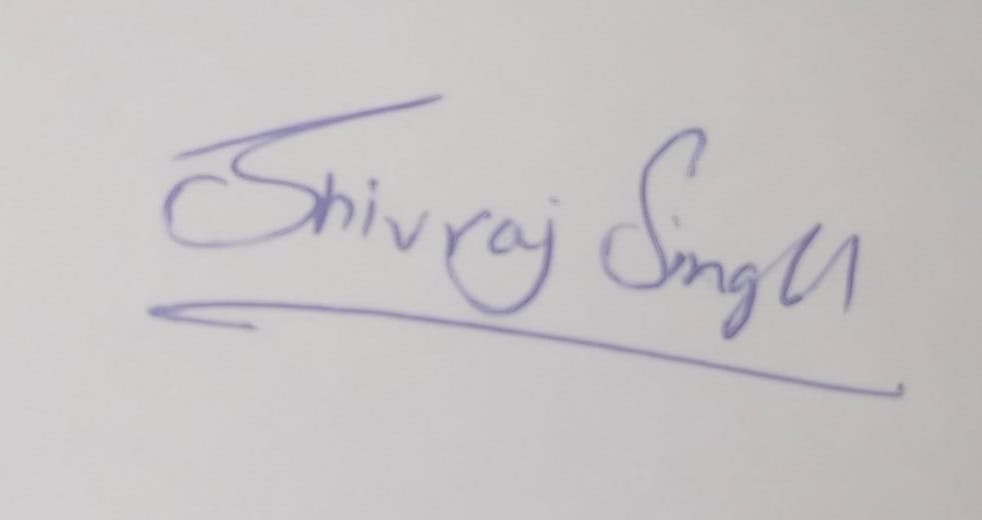 Shivraj Singh